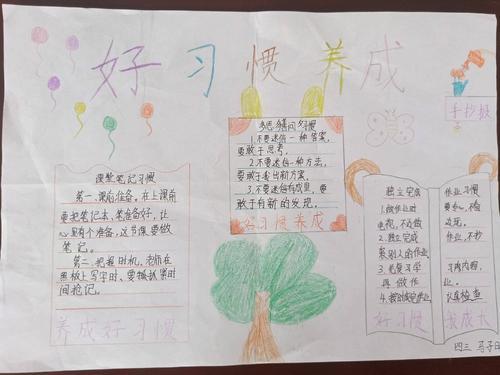 好习惯养成
手抄报
课堂笔记习惯
第一、课前准备。在上课前
要把笔记夹、笔准备好，让
心里有个准备，这节课要做
笔记。
第二、把握时机，老师在
黑板上写字时、要抓紧时
间抢记。
养成好习惯
多思、善问习惯
1.不要迷信一种答案，
要敢于思考。
2.不要迷信一种方法，
要敢于拿出新方案。
3.不要迷信权威，要
敢于有新的发现。
好习惯养成
独立完成
1.做作业时
电视，不边做
2.独立完成
袭别人的作业
3.先复习学
再做作
4.按时完成作业
好习惯
作业习惯
要看
边玩。
作业，不抄
习内内容，
业。
认真检查
我成长
四三 马子